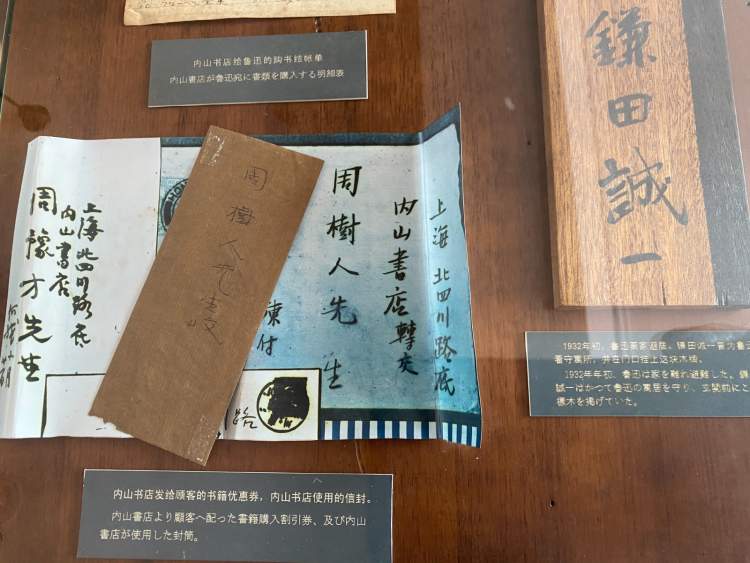 内山书店给鲁迅的购书结帐单
内山書店が魯迅宛に書類を購入する明細表
鎌田誠一
上海 北四川路底
内山書店轉交
周樹人先生
路
周樹人
上海北四川路底
内山書店
周豫才先生
1932年初，鲁迅离家避难。镰田诚一曾为鲁
看守寓所，并在门口挂上这块木牌。
1932年年初、魯迅は家を離れ避難した。鎌
誠一はかつて魯迅の寓居を守り、玄関前に
標木を掲げていた。
内山书店发给顾客的书籍优惠券，内山书店使用的信封。
内山書店より顧客へ配った書籍購入割引券、及び内山
書店が使用した封筒。